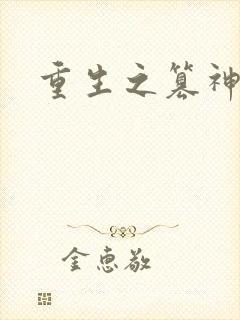 重生之篡神
金惠敬